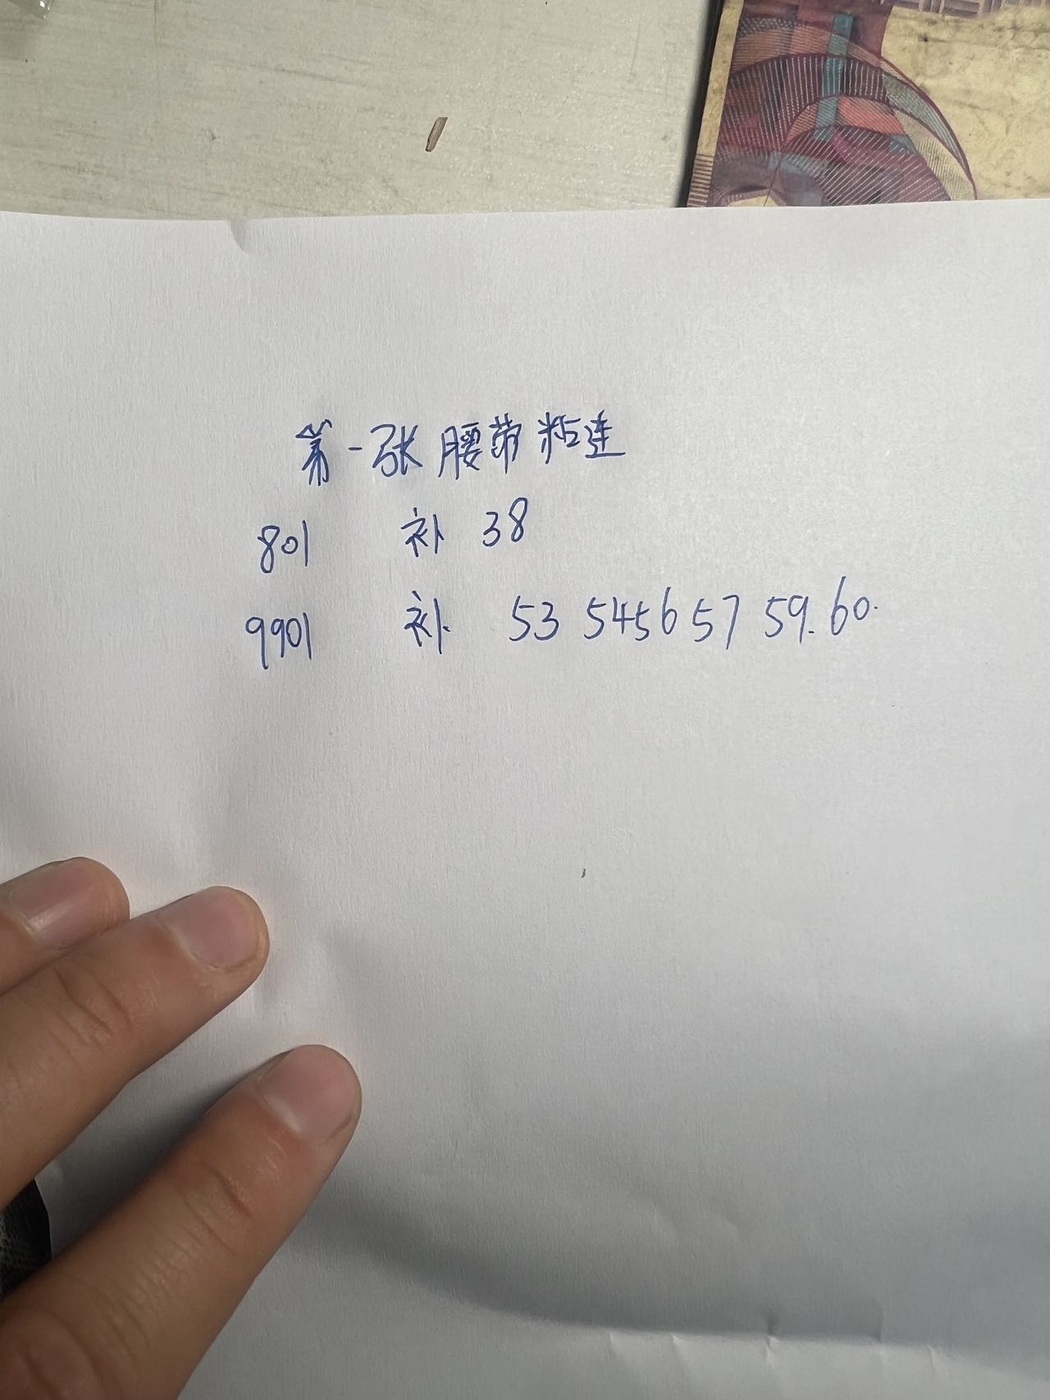 第一张腰带粘连
801 补 38
9901 补 53 54 56 57 59. 60.